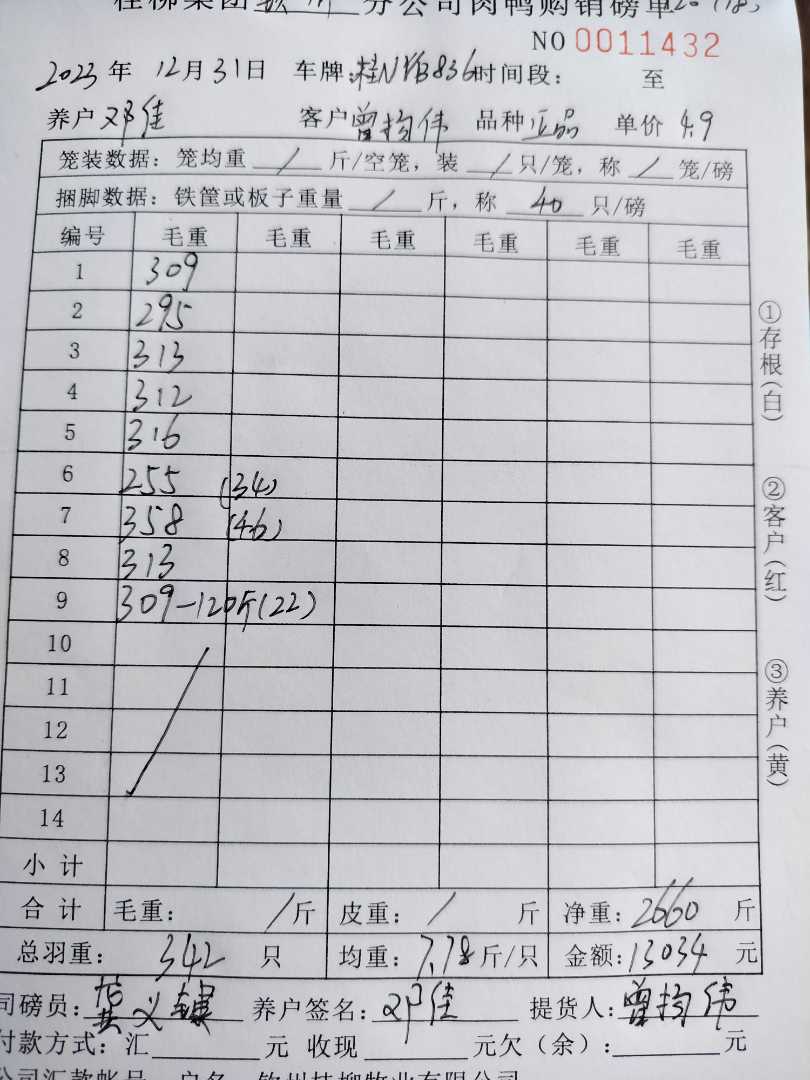 桂柳集团钦州分公司肉鸭购销磅单
NO 0011432
2023年 12月31日 车牌:桂NYB836时间段: 至
养户 邓佳 客户 曾均伟 品种 正品 单价 4.9
笼装数据: 笼均重 / 斤/空笼, 装 / 只/笼, 称 / 笼/磅
捆脚数据: 铁筐或板子重量 / 斤, 称 40 只/磅
编号 毛重 毛重 毛重 毛重 毛重 毛重
1 309
2 295
3 313
4 312
5 316
6 255 (34)
7 358 (46)
8 313
9 309-120斤(22)
10
11
12
13
14
小计
合计 毛重: / 斤 皮重: / 斤 净重: 2660 斤
总羽重: 342 只 均重: 7.78 斤/只 金额: 13034 元
司磅员: 养户签名: 邓佳 提货人: 曾均伟
付款方式: 汇 元 收现 元欠(余): 元
公司汇款帐号 户名 钦州桂柳牧业有限公司
①存根(白)
②客户(红)
③养户(黄)